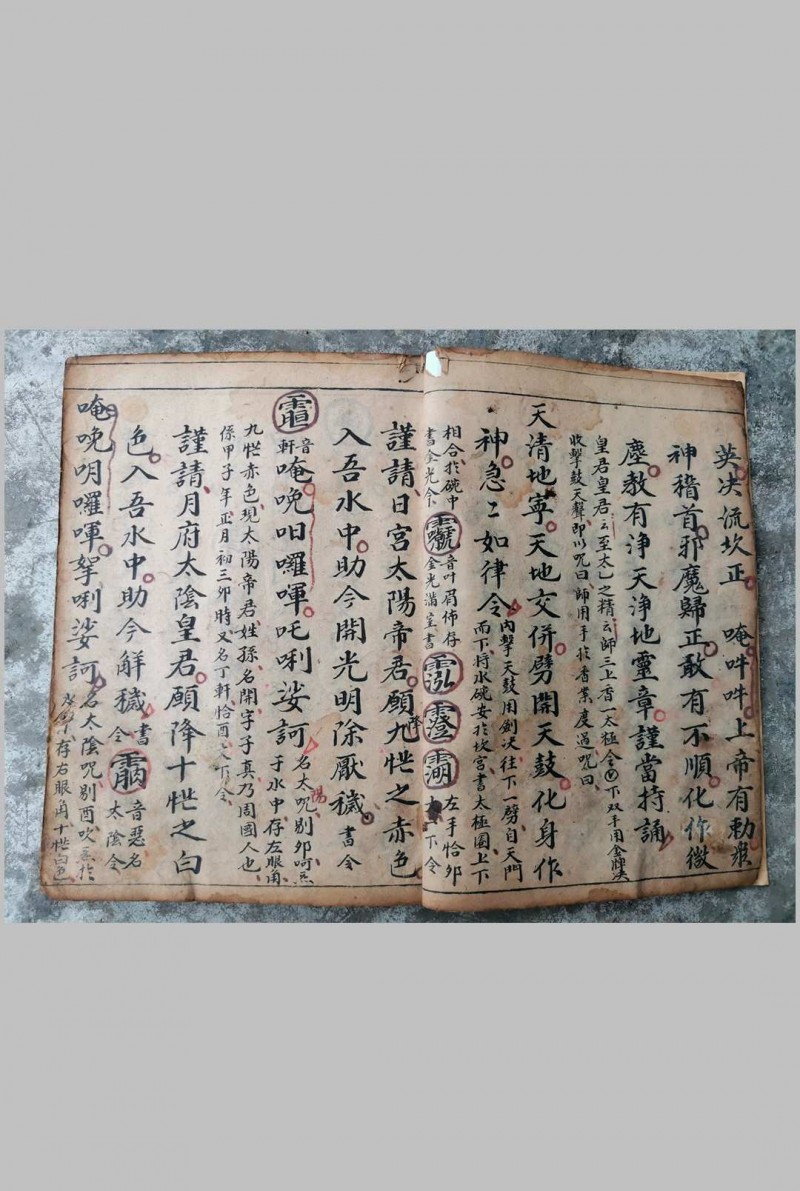 英决流坎正 唵吽吽上帝有勅眾
神稽首邪魔歸正敢有不順化作微
塵教有淨天淨地靈章謹當持誦
皇君皇君云至太乙之精云師三上香一太極令下双手用金牌决
收擊鼓天聲即以咒曰師用手於香業度過咒曰
天清地寧天地交併劈開天鼓化身作
神急〻如律令
內擊天鼓用劍决往下一劈自天門
而下將水碗安於坎宮書太極圈上下
相合於碗中 音叶眉佈存 左手恰卯
書金光令 金光滿室書 下令
謹請日宮太陽帝君願降九惺之赤色
入吾水中助今開光明除厭穢 書令
音軒 唵晚吅囉啅吒唎娑訶 名太陽咒剔卯
于水中存左眼角
九惺赤色現太陽帝君姓孫名開字子真乃周國人也
係甲子年正月初三卯時又名丁軒恰酉文下令
謹請月府太陰皇君願降十惺之白
色入吾水中助今解穢 書令 音惡名太陰令
唵晚明囉啅拏唎娑訶 名太陰咒剔酉吹炁於
存右眼角十惺白色